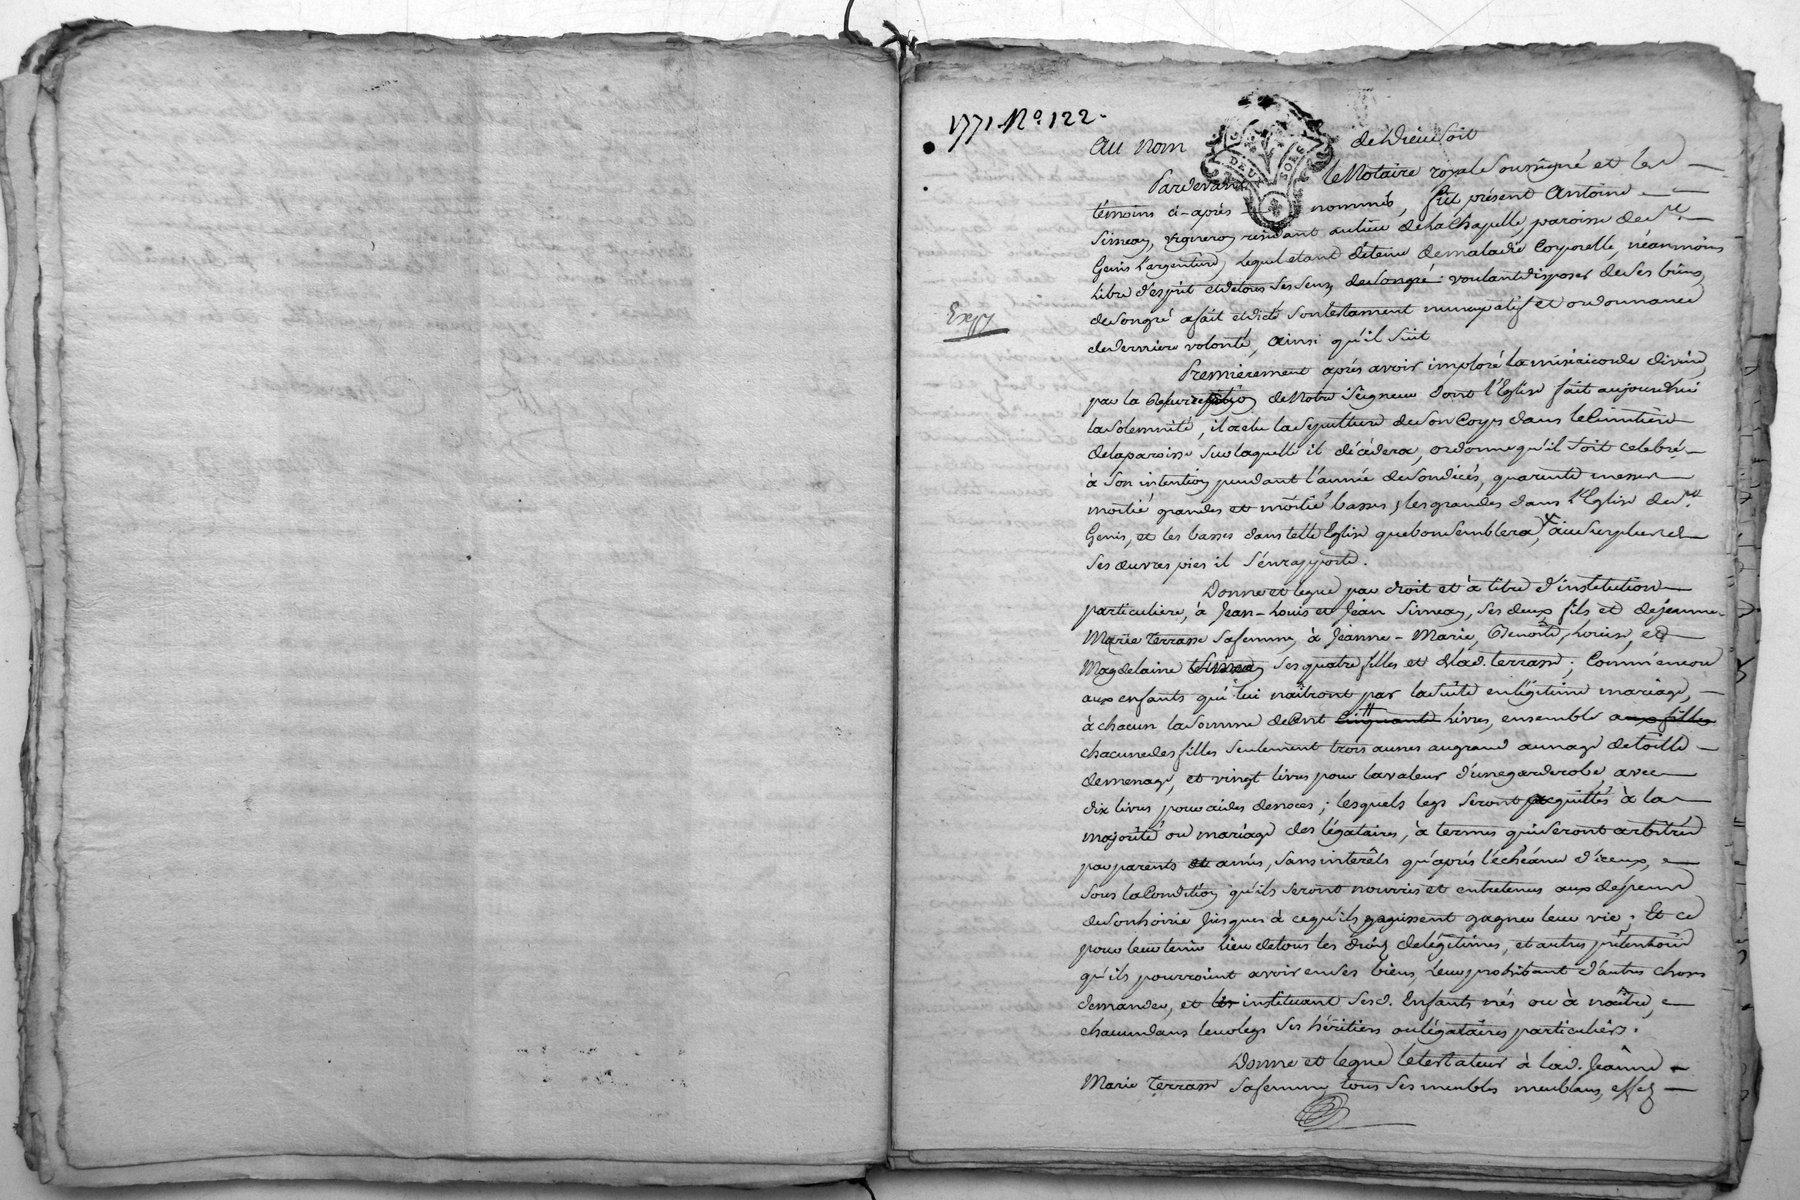 1771 No. 122.
DEUX SOLS
Au nom de Dieu soit
Pardevant le Notaire royal soussigné et les
témoins ci-après nommés, fut présent Antoine
Simean, vigneron residant au lieu de la Chapelle, paroisse de St.
Genis l'argentiere, lequel etant détenu de maladie corporelle, néanmoins
libre d'esprit et de tous ses sens, de son gré voulant disposer de ses biens,
Exp.
de son gré a fait et dicté son testament nuncupatif et ordonnance
de derniere volonté, ainsi qu'il suit
Premierement après avoir imploré la miséricorde divine,
par la Resurrection de Notre Seigneur dont l'Eglise fait aujourdhui
la solemnité, il a elu la sepulture de son Corps dans le Cimetiere
de la paroisse sur laquelle il décédera, ordonne qu'il soit celebré
à son intention pendant l'année de son décés, quarente messes
moitié grandes et moitié basses, les grandes dans l'Eglise de St.
Genis, et les basses dans telle Eglise que bon semblera, au surplus de
ses œuvres pies il s'en rapporte.
Donne et legue par droit et à titre d'institution
particuliere, à Jean-Louis et Jean Simean, ses deux fils et de jeanne
Marie Terrasse sa femme, à Jeanne-Marie, Benoite, Louise, et
Magdelaine Simean ses quatre filles et de lad. terrasse; Comme encore
aux enfants qui lui naitront par la suite en légitime mariage,
à chacun la somme de Cent cinquante livres, ensemble aux filles
chacune des filles seulement trois aunes au grand aunage de toille
de menage, et vingt livres pour la valeur d'une garderobe, avec
dix livres pour aides de noces; lesquels legs seront acquittés à la
majorité ou mariage des légataires, à termes qui seront arbitrés
par parents et amis, sans interêts qu'après l'échéance d'iceux,
sous la Condition qu'ils seront nourris et entretenus aux depens
de son hoirie jusques à ce qu'ils puissent gagner leur vie. Et ce
pour leur tenir lieu de tous les droits de légitimes, et autres prétentions
qu'ils pourroient avoir en ses biens, leur prohibant d'autres choses
demander, et les instituant sesd. Enfants nés ou à naitre,
chacun dans leur legs ses héritiers ou légataires particuliers.
Donne et legue le testateur à lad. Jeanne
Marie Terrasse sa femme, tous ses meubles meublans, effets